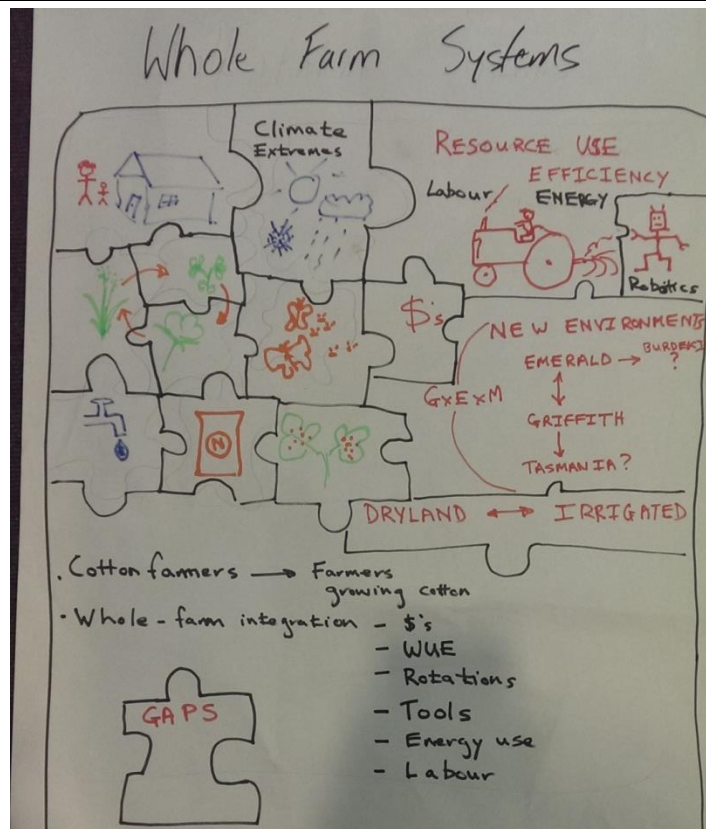 Whole Farm Systems
Climate
Extremes
RESOURCE USE
EFFICIENCY
Labour
ENERGY
Robotics
$'s
NEW ENVIRONMENTS
EMERALD →
?
GxExM
↔
GRIFFITH
↓
TASMANIA?
N
DRYLAND ↔ IRRIGATED
. Cotton farmers → Farmers
growing cotton
· Whole-farm integration - $'s
- WUE
- Rotations
- Tools
- Energy use
- Labour
GAPS